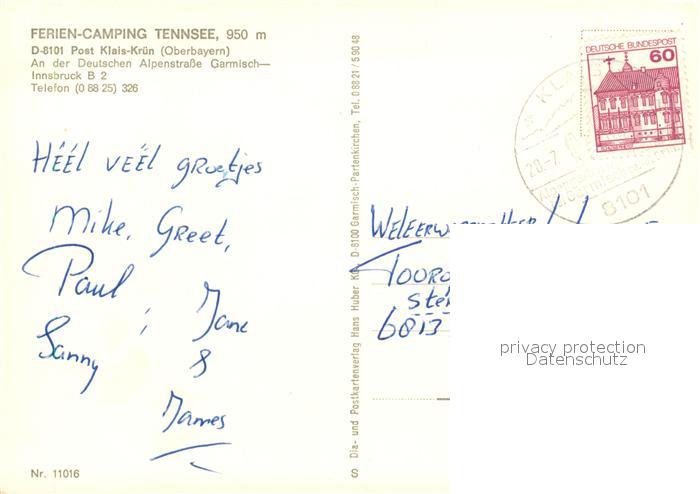 FERIEN-CAMPING TENNSEE, 950 m
D-8101 Post Klais-Krün (Oberbayern)
An der Deutschen Alpenstraße Garmisch—
Innsbruck B 2
Telefon (0 88 25) 326
HÉÉL VEËL GROETJES
Mike, Greet,
Paul, Jane
Sanny &
James
Nr. 11016
S Dia- und Postkartenverlag Hans Huber KG D-8100 Garmisch-Partenkirchen, Tel. 0 88 21 / 5 90 48
DEUTSCHE BUNDESPOST
60
8101
6813
privacy protection
Datenschutz